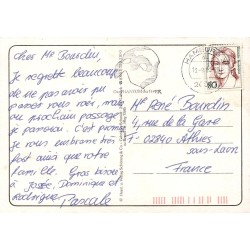 Cher Mr Bourdin
Je regrette beaucoup
de ne pas avoir pu
passer vous voir, mais
au prochain passage
je passerai. C'est promis
Je vous embrasse très
fort ainsi que votre
famille. Gros bisous
à Josée, Dominique et
Rodrigue.
Pascale
HAMBURG
80
Mr René Bourdin
4, rue de la Gare
F- 02840 Athies
sous-Laon
France